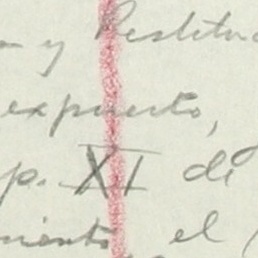 y Restitu
expuesto,
p. XI de
miento el